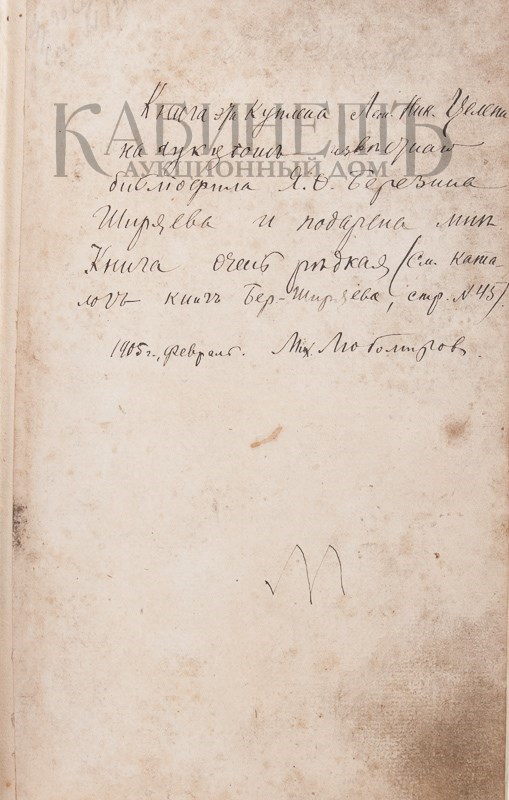 КАБИНЕТЪ
АУКЦИОННЫЙ ДОМ
Книга эта куплена Ник.
на аукціонѣ извѣстнаго
библіофила Я. Ѳ. Березина
Ширяева и подарена мнѣ
Книга очень рѣдкая (См. ката-
логъ книгъ Бер-Ширяева, стр. №45).
1905 г., февраль. Мих. Любомиров.
М